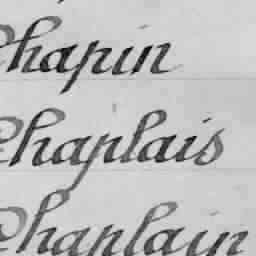 Chapin
Chaplais
Chaplain